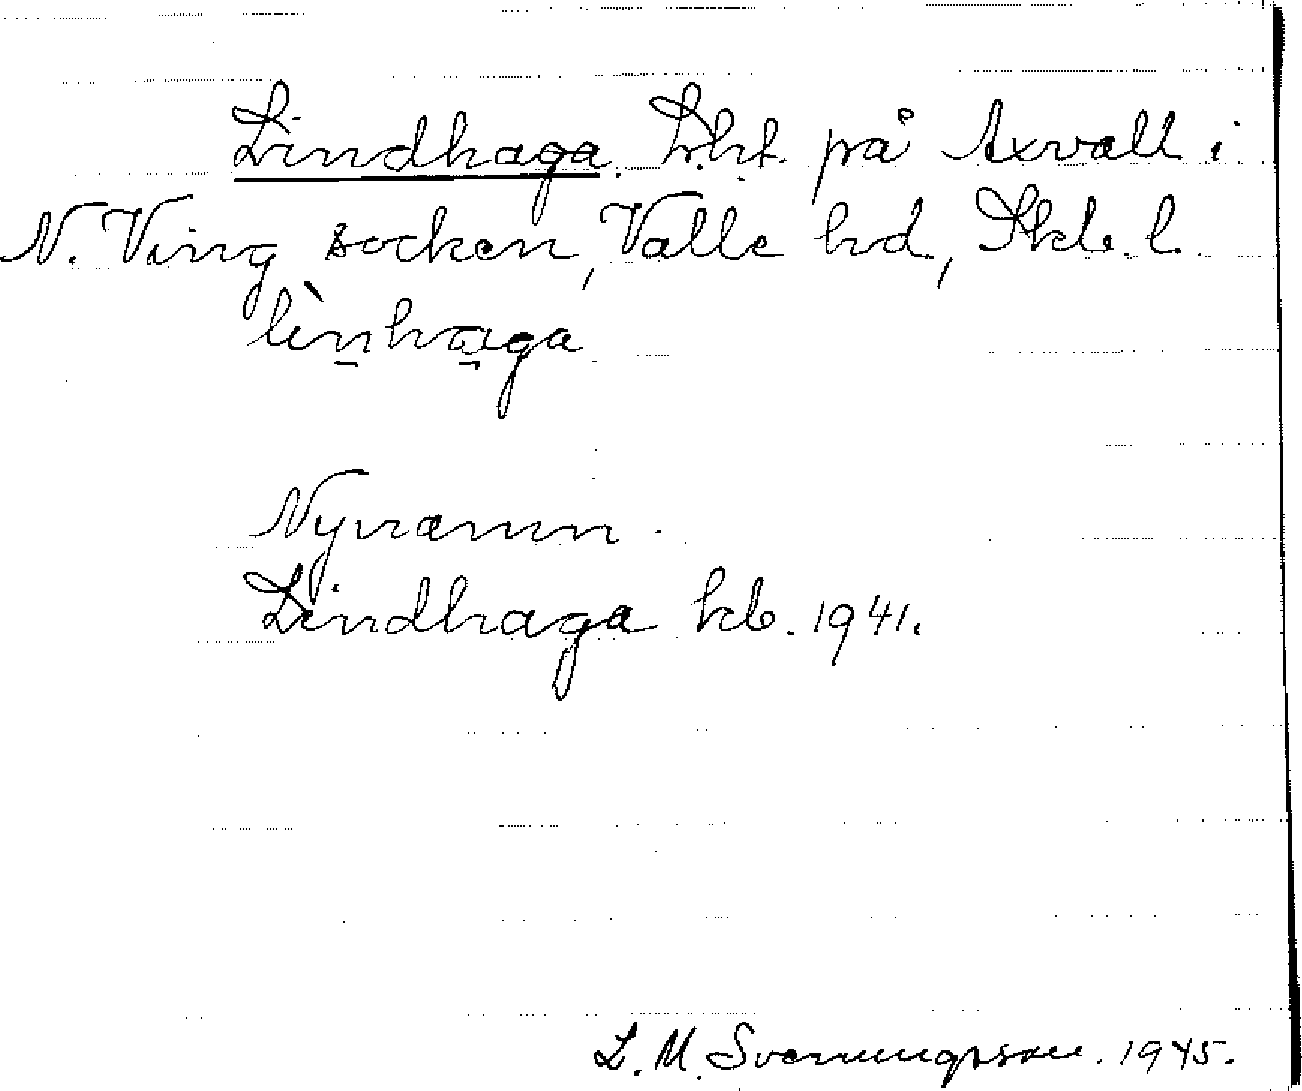 Lindhaga. Lht. på Axvall i
N. Ving socken, Valle hd, Skbl. l.
lìn̠ha̠ga
Nynamn.
Lindhaga kb. 1941.
L. M. Svenungsson. 1945.